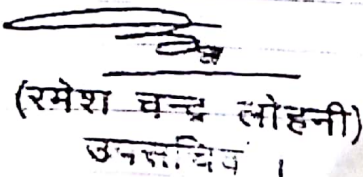 (रमेश चन्द्र लोहनी)
उपसचिव ।